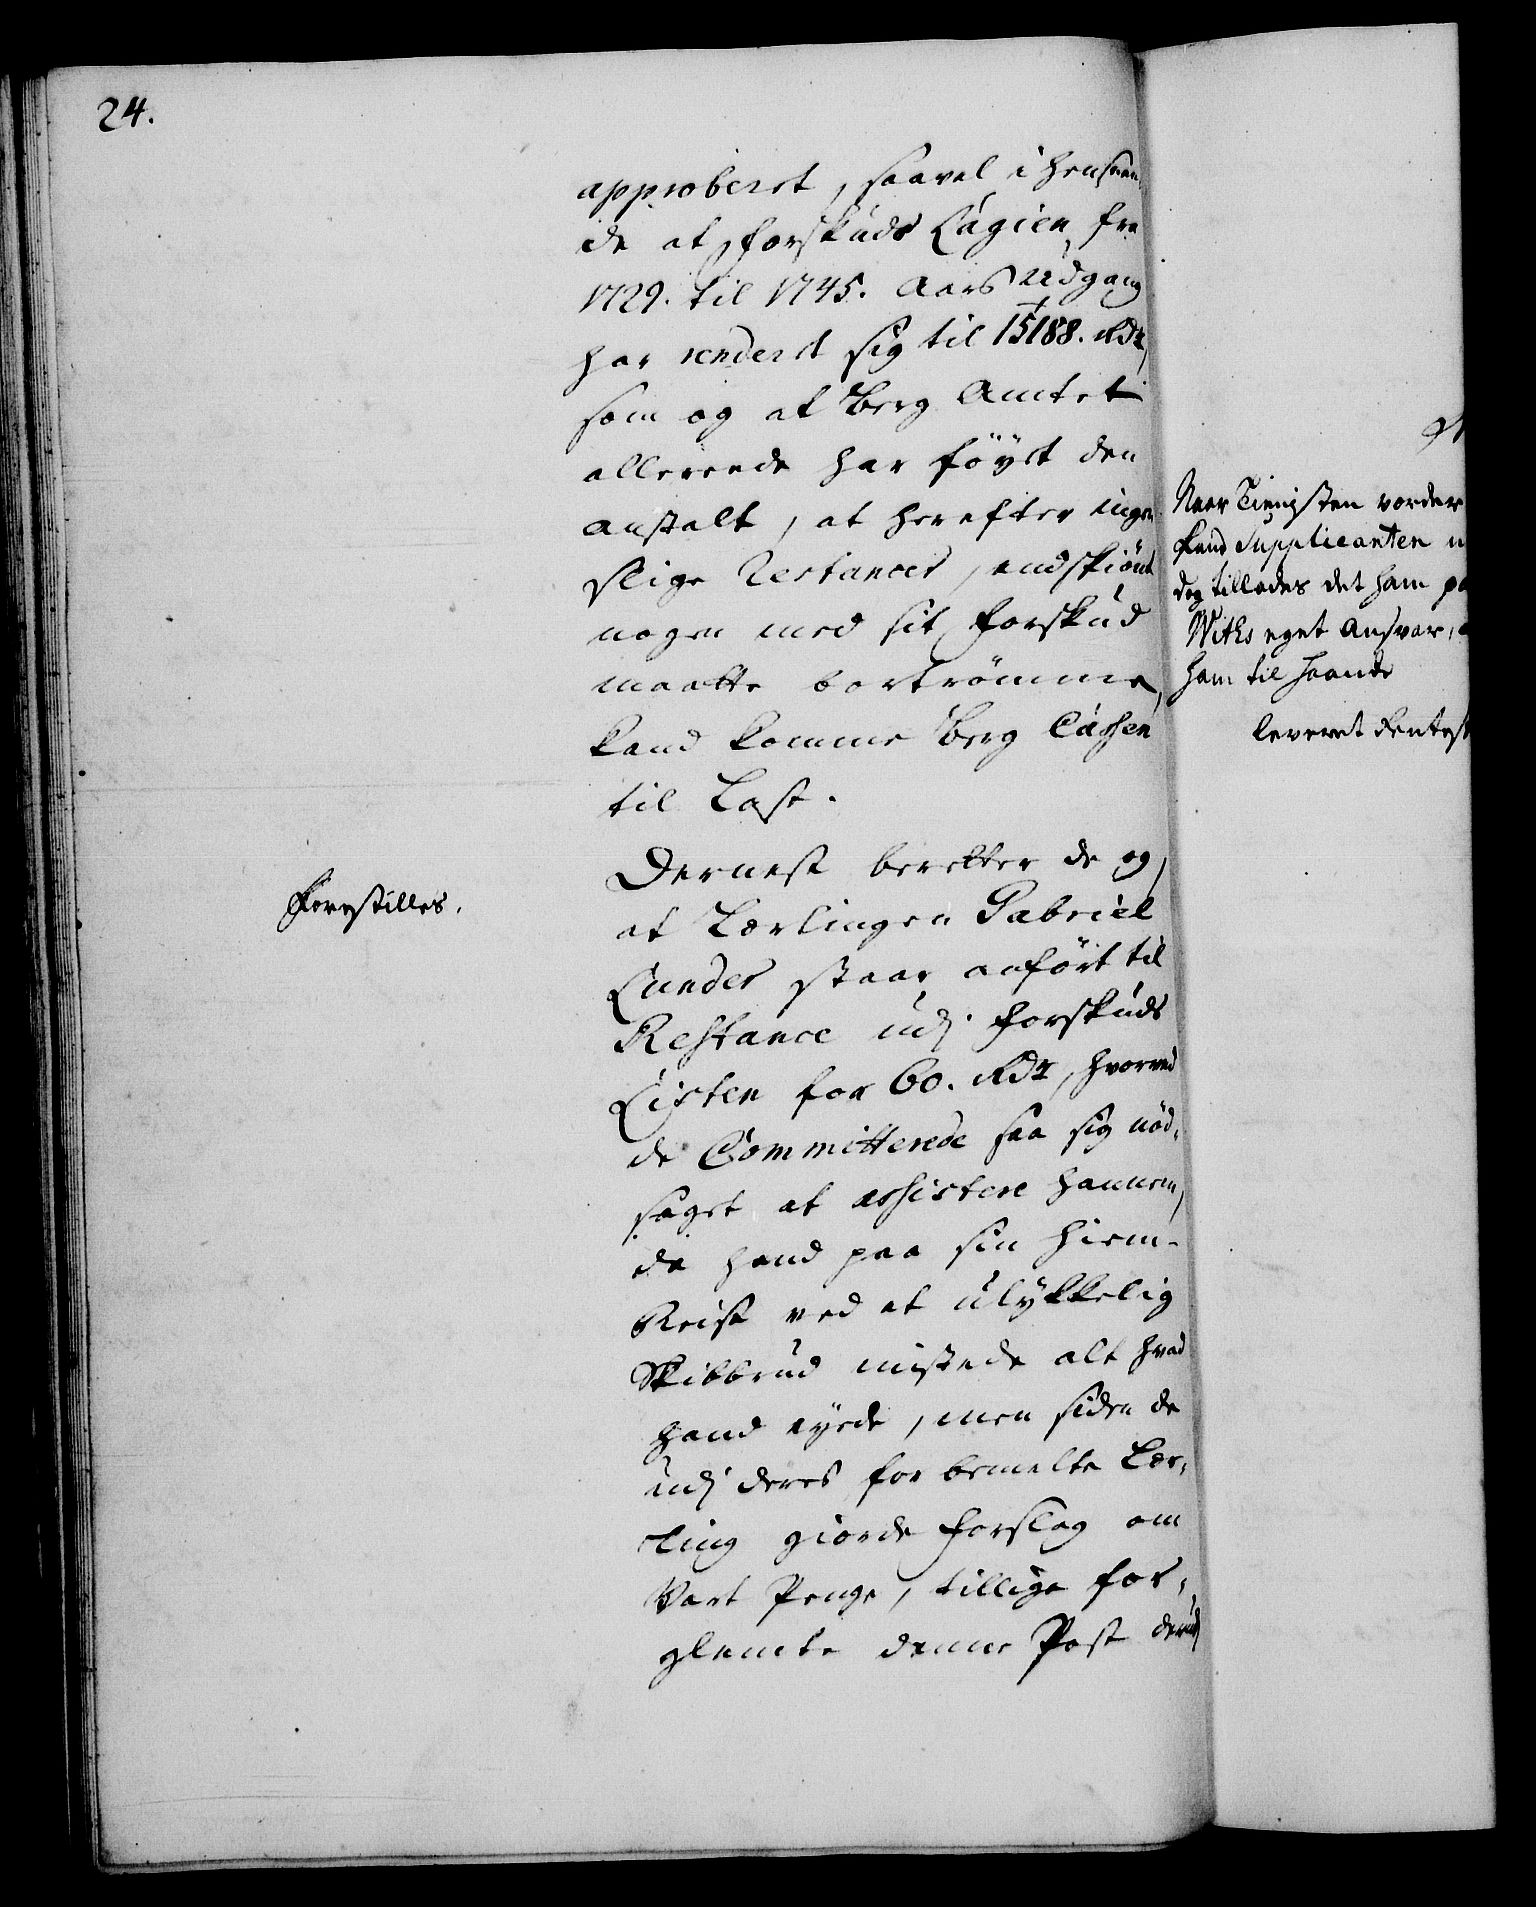 24.
approberet, saavel i henseen-
de at forskuds Lagien fra
1729. til 1745. Aars Udgang
har renderet sig til 15188. Rdr,
som og at Berg Amtet
allereede har föyet den
anstalt, at herefter ingen
slige Restancer, endskiönt
nogen med sit forskud
maatte bortrömme,
kand komme Berg Cassen
til Last.
Forestilles.
Dernest beretter de og,
at Lærlingen Gabriel
Lunder staar anfört til
Restance udj forskuds
Listen for 60. Rdr, hvorved
de Committerede saa sig nöd-
saget at assistere hannem,
da hand paa sin hiem-
Reise ved et ulykkelig
Skibbrud mistede alt hvad
hand eyede, men siden de
udj deres for bemelte Lær-
ling giorde forslag om
Vart Penge, tillige for-
glemte denne Post derudj
Naar Tienisten vorder
kand Supplicanten
dog tillades det ham
Withs eget Ansvar,
ham til haande
leveret